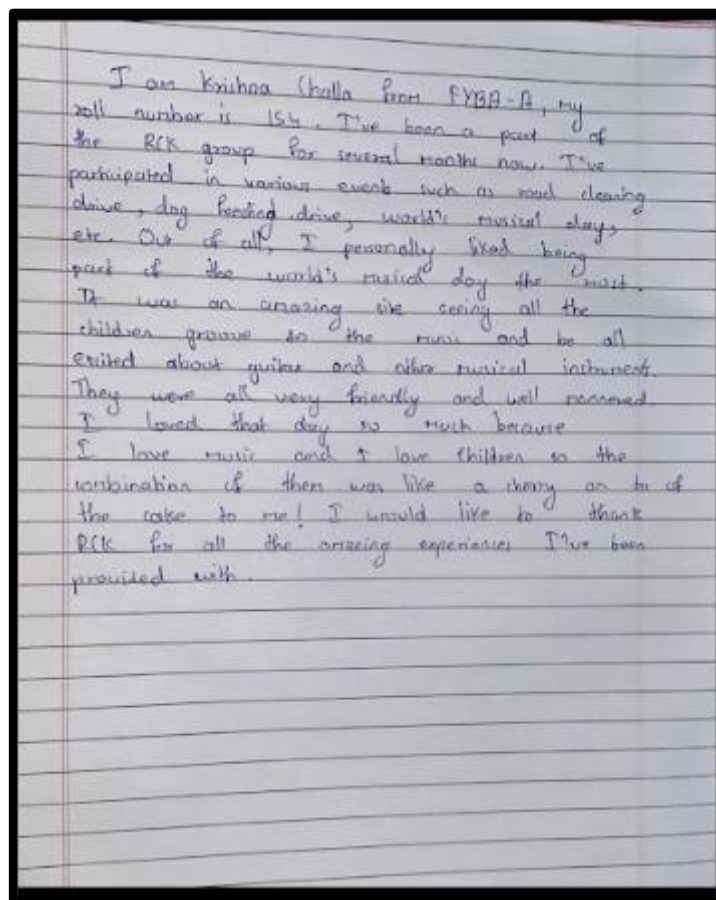 I am Krishna Challa from FYBA-A, my
roll number is 154. I've been a part of
the RCK group for several months now. I've
participated in various events such as road cleaning
drive, dog feeding drive, world's musical day,
etc. Out of all, I personally liked being
part of the world's musical day the most.
It was an amazing seeing all the
children groove to the music and be all
exited about guitar and other musical instrument.
They were all very friendly and well mannered
I loved that day so much because
I love music and I love children so the
combination of them was like a cherry on to of
the cake to me! I would like to thank
RCK for all the amazing experiences I've been
provided with.